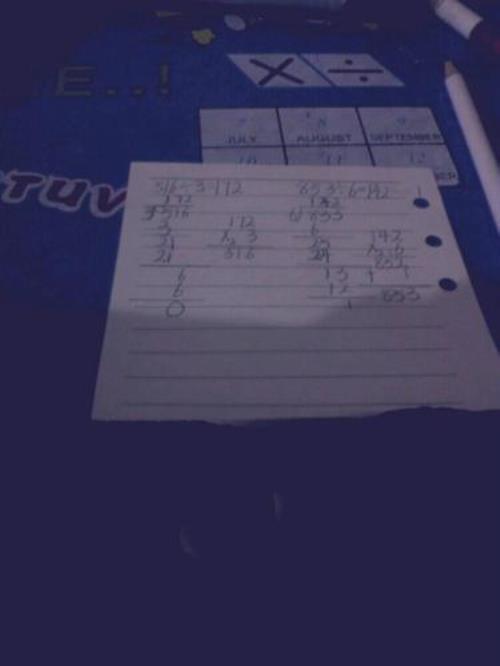 E..!
× ÷
7 8 9
JULY AUGUST SEPTEMBER
10 11 12
BER
TUV
516÷3=172
172
3 516
3
21
21
6
6
0
172
× 3
516
853÷6=142
142
6 853
6
25
24
13
12
1
142
× 6
852
+ 1
853